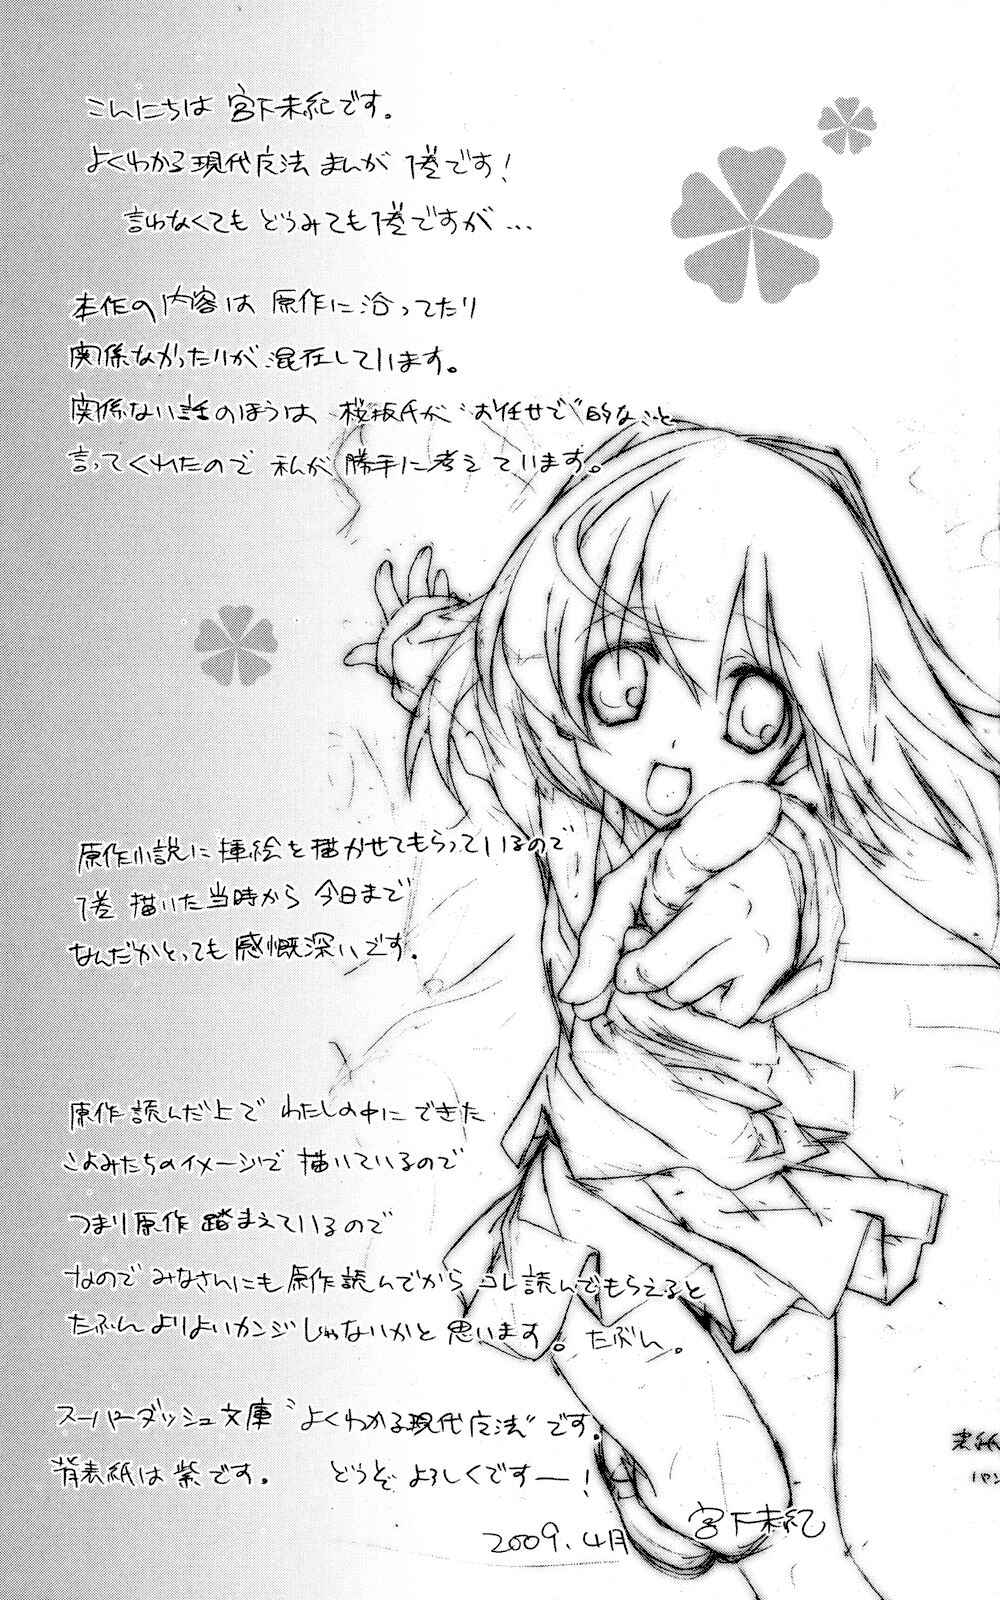 こんにちは 宮下未紀です。
よくわかる現代魔法 まんが 1巻です!
言わなくても どうみても1巻ですが…
本作の内容は 原作に沿ってたり
関係なかったりが 混在しています。
関係ない話のほうは 桜坂氏が “お任せで”的なこと
言ってくれたので 私が 勝手に考えています。
原作小説に挿絵を描かせてもらっているので
1巻 描いた当時から 今日まで
なんだかとっても感慨深いです。
原作 読んだ上で わたしの中に できた
こよみたちのイメージで 描いているので
つまり原作 踏まえているので
なので みなさんにも原作読んでから コレ読んでもらえると
たぶん よりよいカンジじゃないかと 思います。たぶん。
スーパーダッシュ文庫 “よくわかる現代魔法” です。
背表紙は 紫です。 どうぞ よろしくですー!
2009.4月 宮下未紀